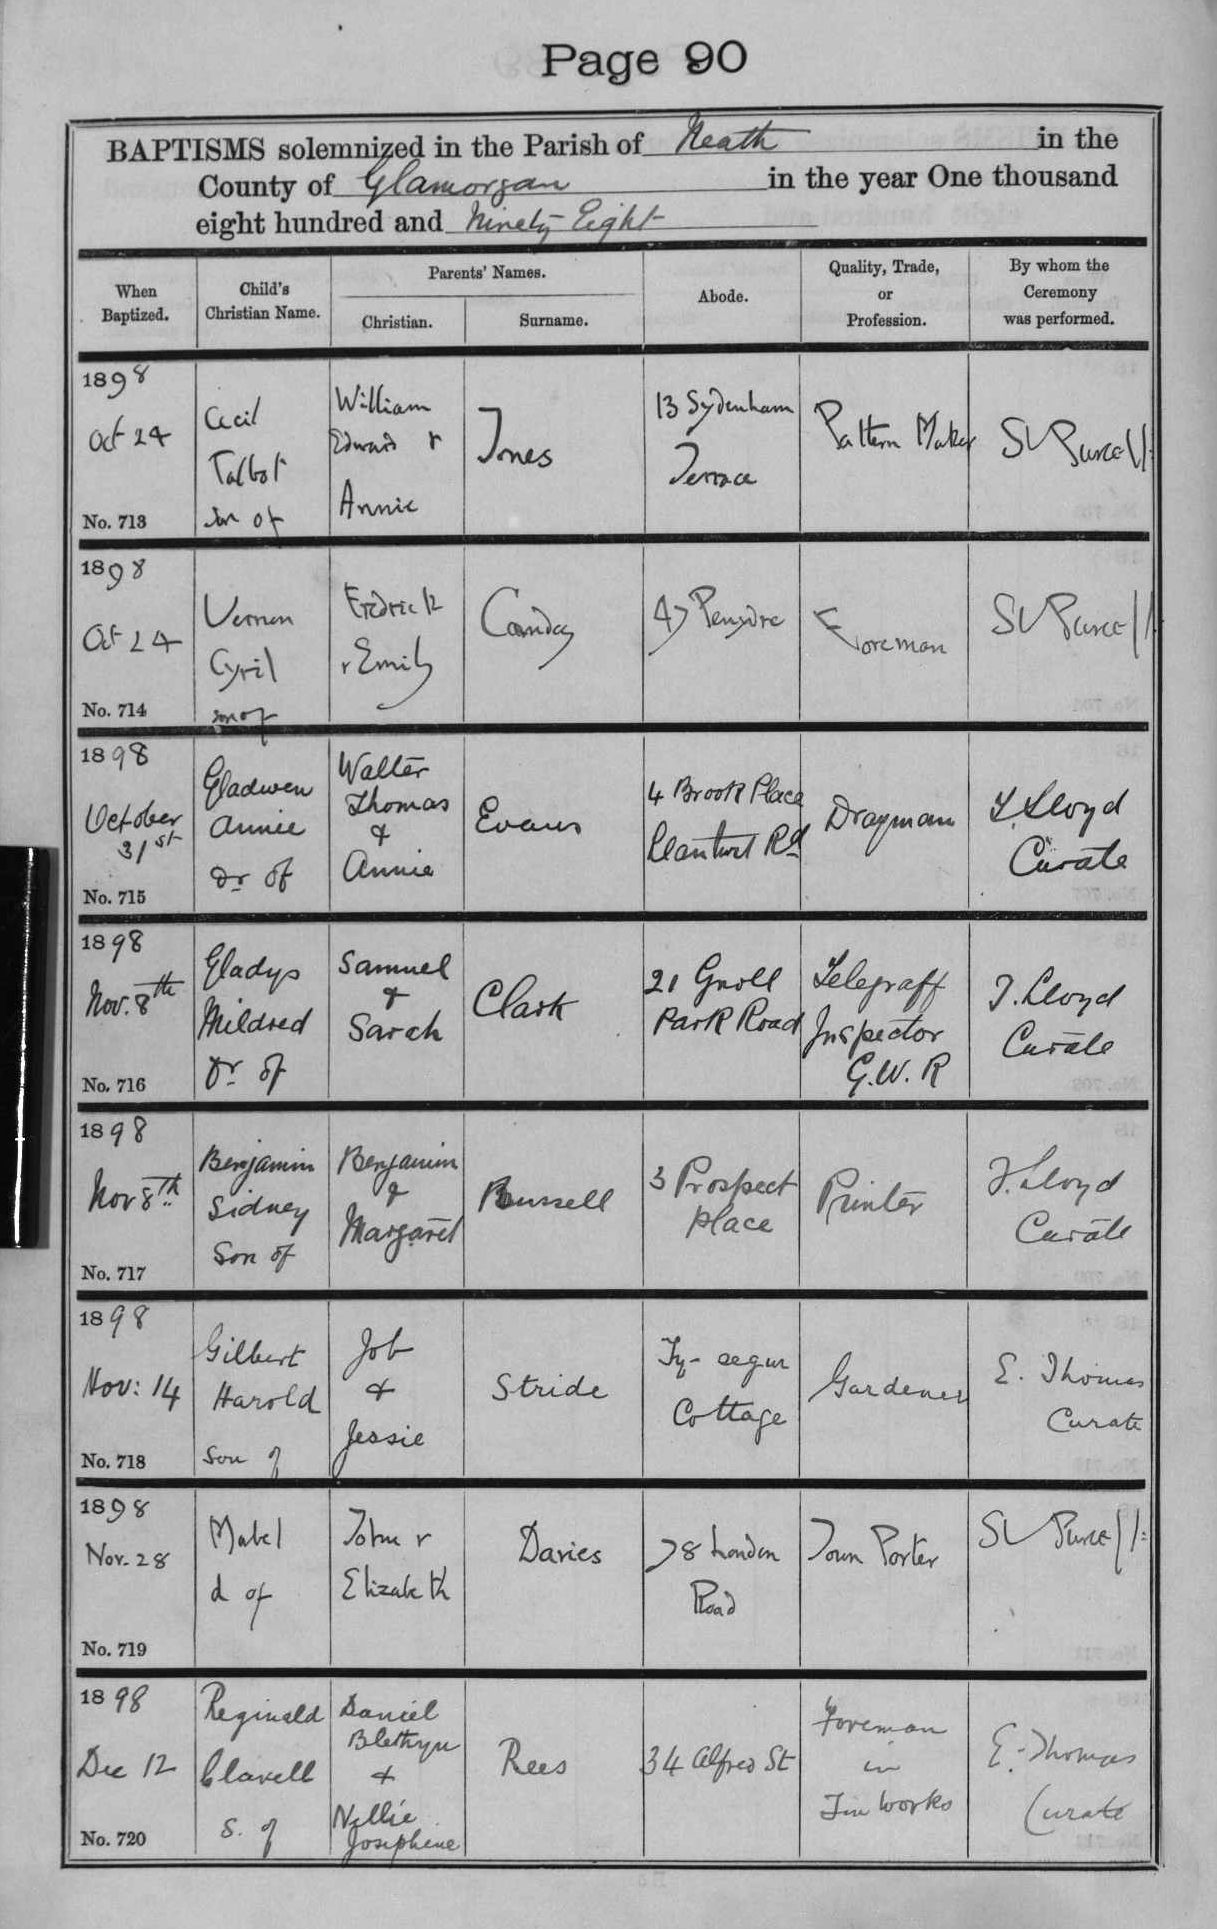 Page 90
BAPTISMS solemnized in the Parish of Neath in the
County of Glamorgan in the year One thousand
eight hundred and Ninety Eight
When Baptized.
Child's Christian Name.
Parents' Names.
Christian.
Surname.
Abode.
Quality, Trade, or Profession.
By whom the Ceremony was performed.
1898
Oct 24
No. 713
Cecil
Talbot
son of
William
Edward &
Annie
Jones
13 Sydenham
Terrace
Pattern Maker
Purcell
1898
Oct 24
No. 714
Vernon
Cyril
son of
Fredrick
& Emily
47 Penydre
Foreman
Purcell
1898
October
31st
No. 715
Gladwen
Annie
Dr of
Walter
Thomas
&
Annie
Evans
4 Brook Place
Llantwit Rd
Drayman
Lloyd
Curate
1898
Nov. 8th
No. 716
Gladys
Mildred
Dr of
Samuel
&
Sarah
Clark
21 Gnoll
Park Road
Telegraff
Inspector
G.W. R
Lloyd
Curate
1898
Nov 8th
No. 717
Benjamin
Sidney
Son of
Benjamin
&
Margaret
Russell
3 Prospect
place
Printer
Lloyd
Curate
1898
Nov: 14
No. 718
Gilbert
Harold
Son of
Job
&
Jessie
Stride
Ty- segur
Cottage
Gardener
E. Thomas
Curate
1898
Nov. 28
No. 719
Mabel
d of
John &
Elizabeth
Davies
78 London
Road
Town Porter
Purcell
1898
Dec 12
No. 720
Reginald
Clavell
S. of
Daniel
Blethyn
&
Nellie
Josephine
Rees
34 Alfred St
Foreman
in
Tin Works
E. Thomas
Curate